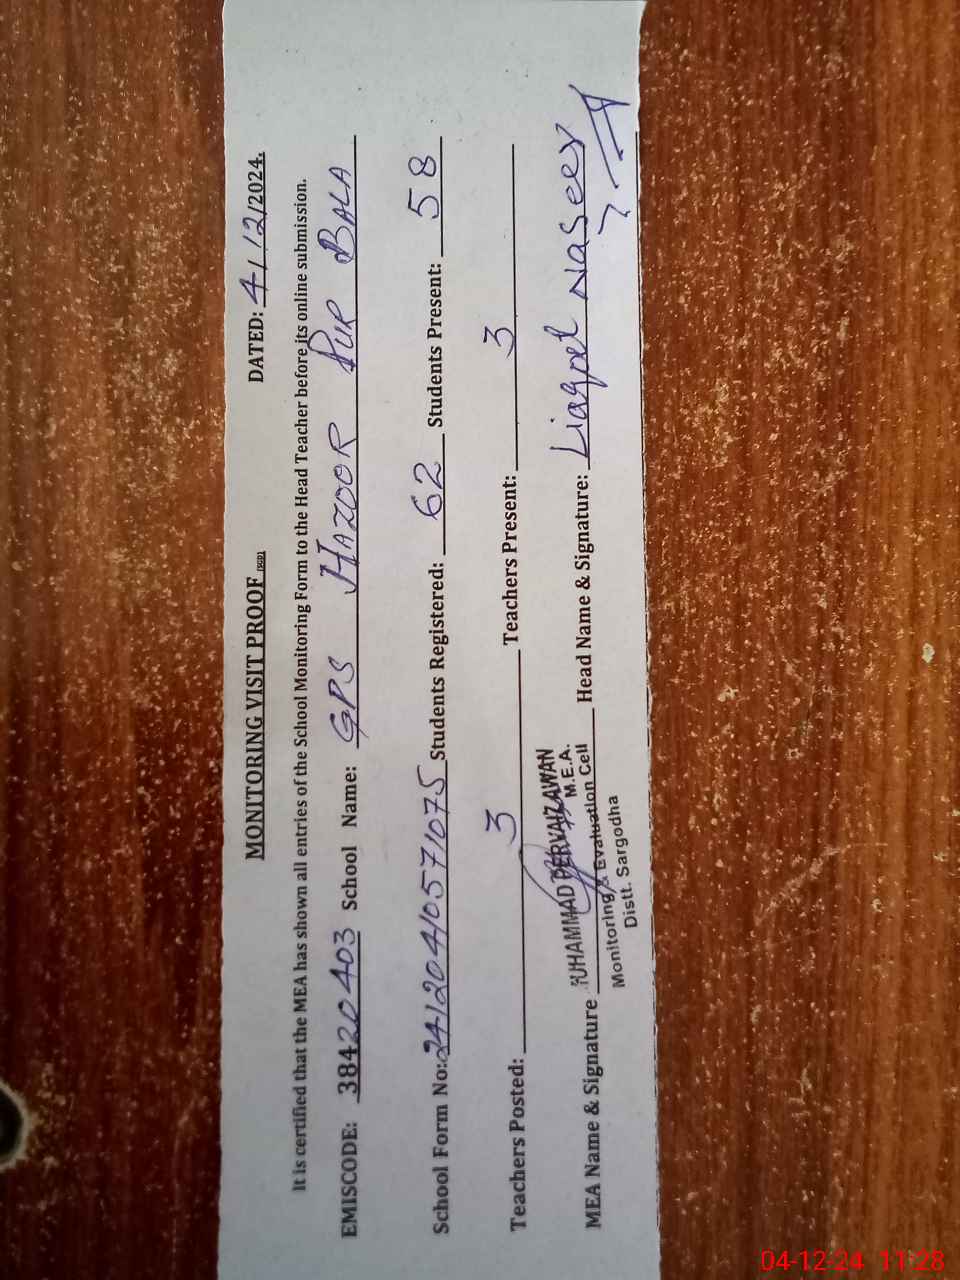 MONITORING VISIT PROOF DATED: 4/12/2024.
It is certified that the MEA has shown all entries of the School Monitoring Form to the Head Teacher before its online submission.
EMISCODE: 38420403 School Name: GPS HAZOOR PUR BALA
School Form No: 24120410571075 Students Registered: 62 Students Present: 58
Teachers Posted: 3 Teachers Present: 3
MEA Name & Signature MUHAMMAD PERVAIZ AWAN Head Name & Signature: Liaqat Naseer
M.E.A.
Monitoring & Evaluation Cell
Distt. Sargodha
04-12-24 11:28